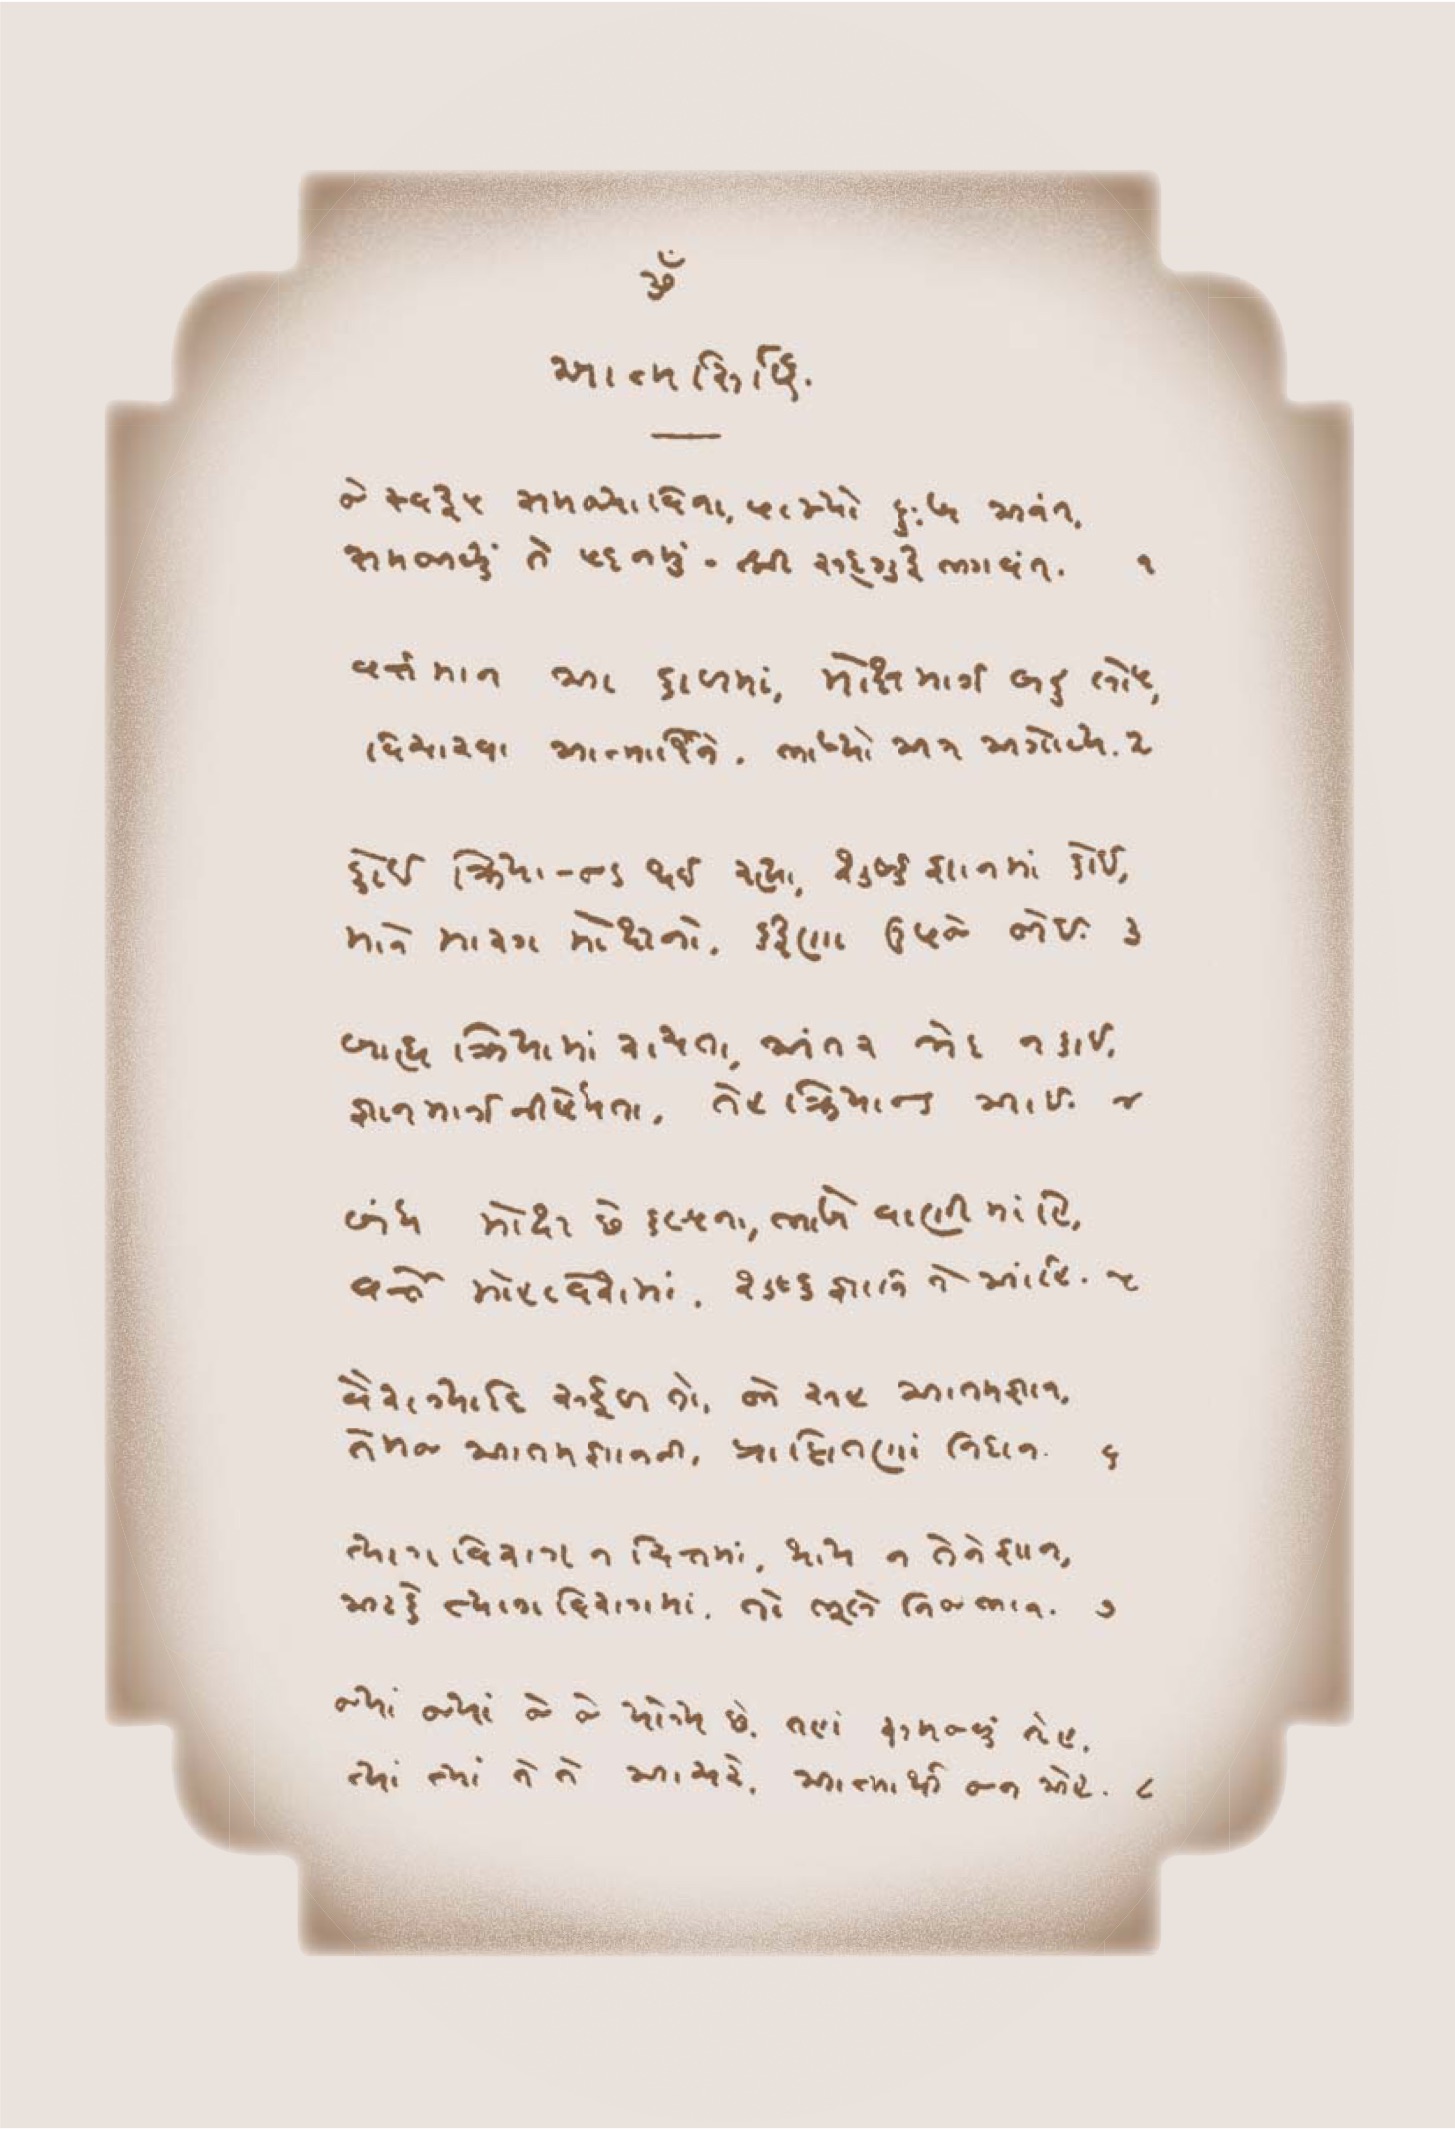 ૐ
આત્મસિદ્ધિ.
જે સ્વરૂપ સમજ્યાવિના, પામ્યો દુઃખ અનંત,
સમજાવ્યું તે પદ નમું. શ્રી સદ્ગુરૂ ભગવંત. ૧
વર્ત્તમાન આ કાળમાં, મોક્ષમાર્ગ બહુ લોપ,
વિચારવા આત્માર્થિને. ભાખ્યો અત્ર અગોપ્ય. ૨
કોઈ ક્રિયા-જડ થઈ રહ્યા, શુષ્ક જ્ઞાનમાં કોઈ,
માને મારગ મોક્ષનો. કરૂણા ઉપજે જોઈ. ૩
બાહ્ય ક્રિયામાં રાચતા, અંતર ભેદ ન કાંઈ,
જ્ઞાનમાર્ગ નીષેધતા, તેહ ક્રિયાજડ આંઈ. ૪
બંધ મોક્ષ છે કલ્પના, ભાખે વાણી માંહિ,
વર્ત્તે મોહાવેશમાં. શુષ્કજ્ઞાની તે આંહિ. ૫
વૈરાગ્યાદિ સફળ તો, જો સહ આતમજ્ઞાન,
તેમજ આતમજ્ઞાનની, પ્રાપ્તિતણાં નિદાન. ૬
ત્યાગ વિરાગ ન ચિત્તમાં, થાય ન તેને જ્ઞાન,
અટકે ત્યાગ વિરાગમાં. તો ભૂલે નિજભાન. ૭
જ્યાં જ્યાં જે જે યોગ્ય છે, તહાં સમજવું તેહ,
ત્યાં ત્યાં તે તે આચરે, આત્માર્થી જન એહ. ૮